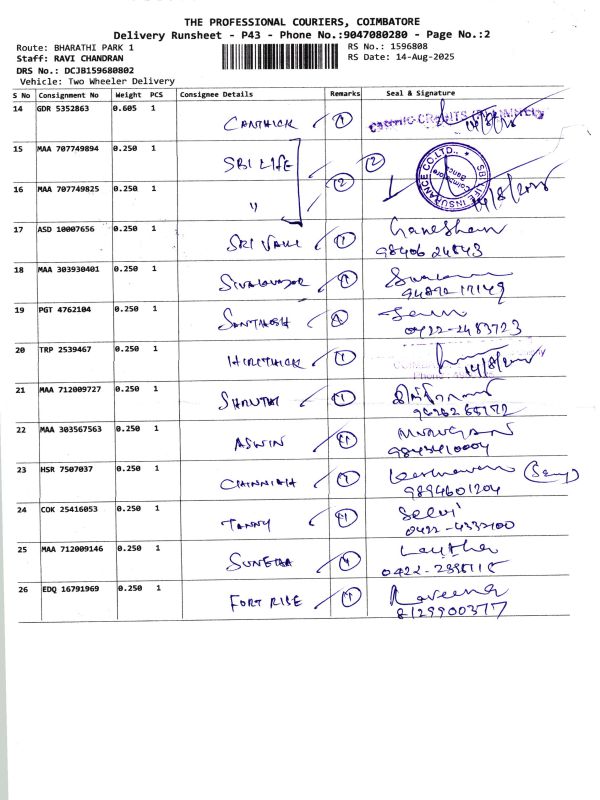 THE PROFESSIONAL COURIERS, COIMBATORE
Delivery Runsheet - P43 - Phone No.:9047080280 - Page No.:2
Route: BHARATHI PARK 1 RS No.: 1596808
Staff: RAVI CHANDRAN RS Date: 14-Aug-2025
DRS No.: DCJB159680802
Vehicle: Two Wheeler Delivery
S No Consignment No Weight PCS Consignee Details Remarks Seal & Signature
14 GDR 5352863 0.605 1
CARTHICK 1 14/8/2025
15 MAA 707749894 0.250 1
SBI LIFE 2
SBI LIFE INSURANCE CO.LTD.,
Coimbatore
16 MAA 707749825 0.250 1
" 2 14/8/2025
17 ASD 10007656 0.250 1
SRI VALLI 1 Ganeshan
98406 24843
18 MAA 303930401 0.250 1
1
94892 17149
19 PGT 4762104 0.250 1
SANTHOSH 1
0422-2483723
20 TRP 2539467 0.250 1
1 14/8/2025
21 MAA 712009727 0.250 1
SHRUTHI 1
22 MAA 303567563 0.250 1
ASWIN 1 Murugan
9843410004
23 HSR 7507037 0.250 1
CHINNIAH 1
9894601204
24 COK 25416053 0.250 1
TANNY 1 Selvi
0422-4332100
25 MAA 712009146 0.250 1
1
26 EDQ 16791969 0.250 1
FORT RISE 1 Raveena
8129900377